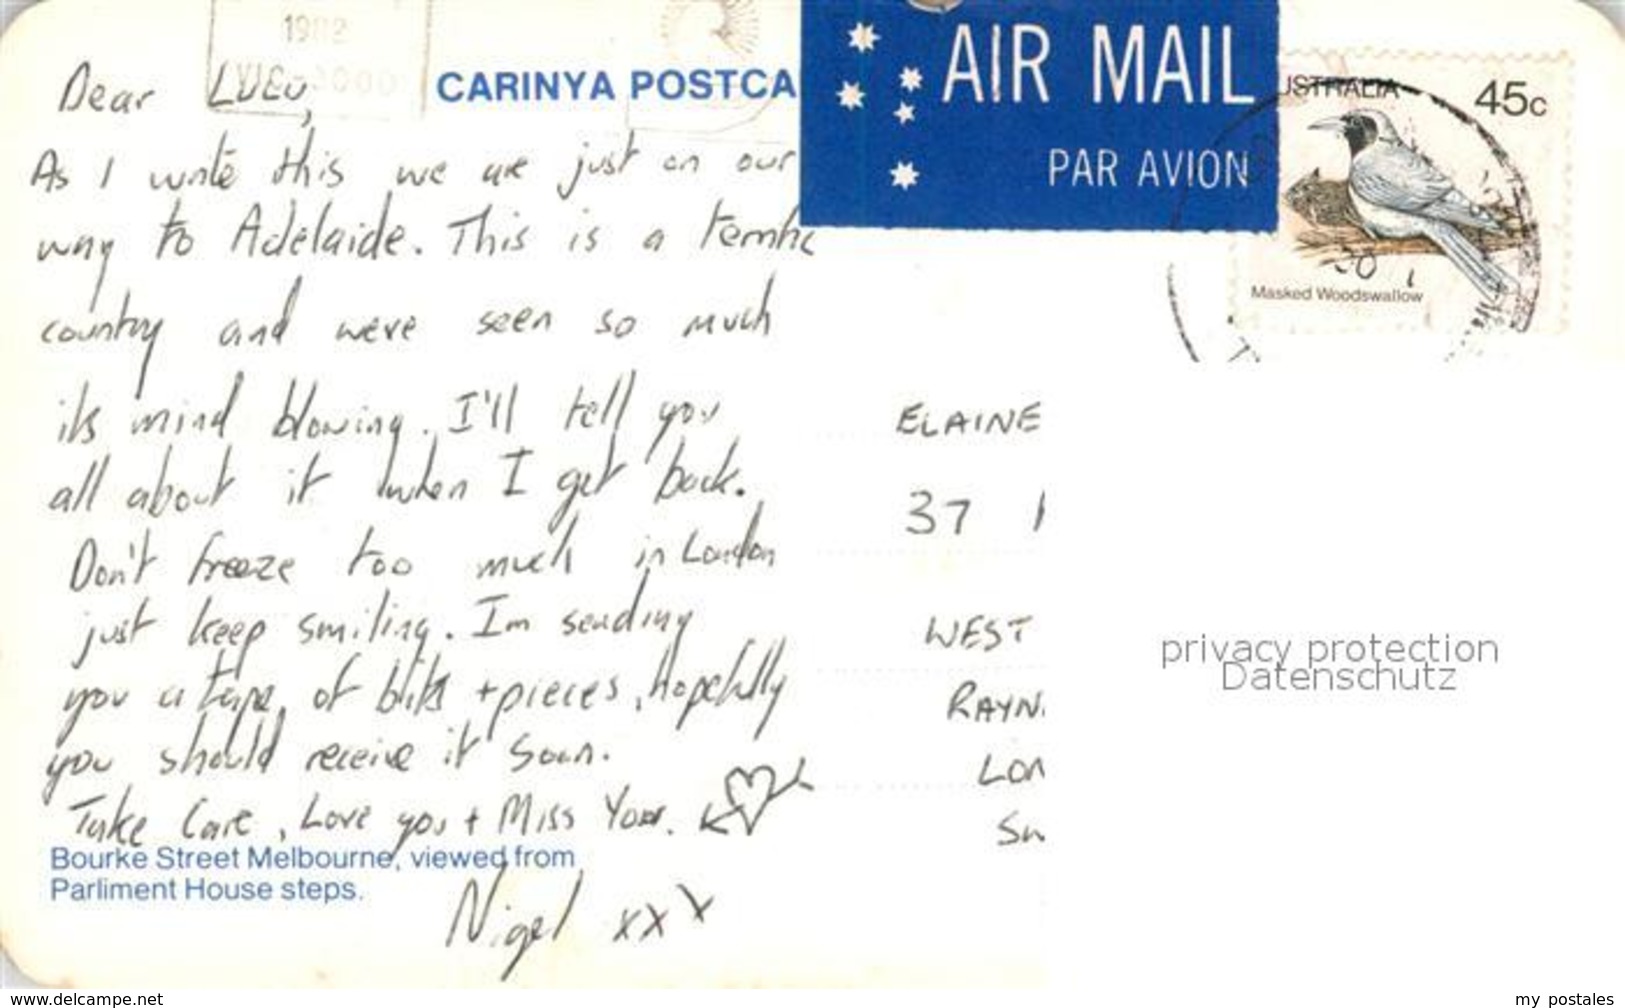 1982
3000
Dear LULU,
CARINYA POSTCA
AIR MAIL
PAR AVION
USTRALIA
45c
Masked Woodswallow
As I write this we are just on our
way to Adelaide. This is a terrific
country and weve seen so much
its mind blowing. I'll tell you
all about it when I get back.
Don't freeze too much in London
just keep smiling. Im sending
you a tape, of bits + pieces, hopefully
you should receive it soon.
Take Care, Love you + Miss You.
Bourke Street Melbourne, viewed from
Parliment House steps.
Nigel xxx
ELAINE
37
WEST
RAYN
LON
SW
privacy protection
Datenschutz
www.delcampe.net
my_postales